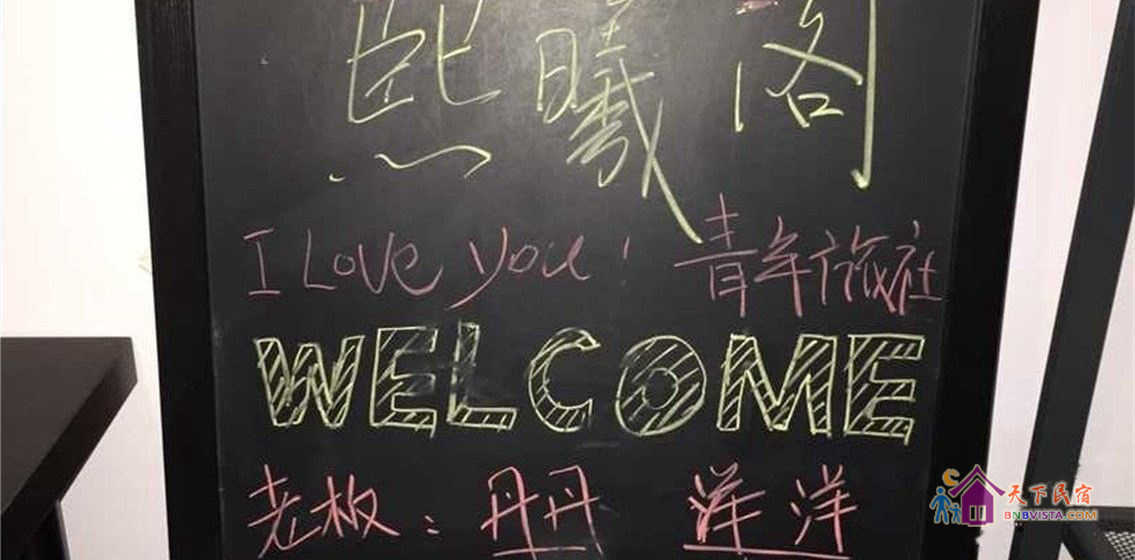 熙曦阁
I Love you! 青年旅社
WELCOME
老板：丹丹 洋洋
天下民宿
BNBVISTA.COM